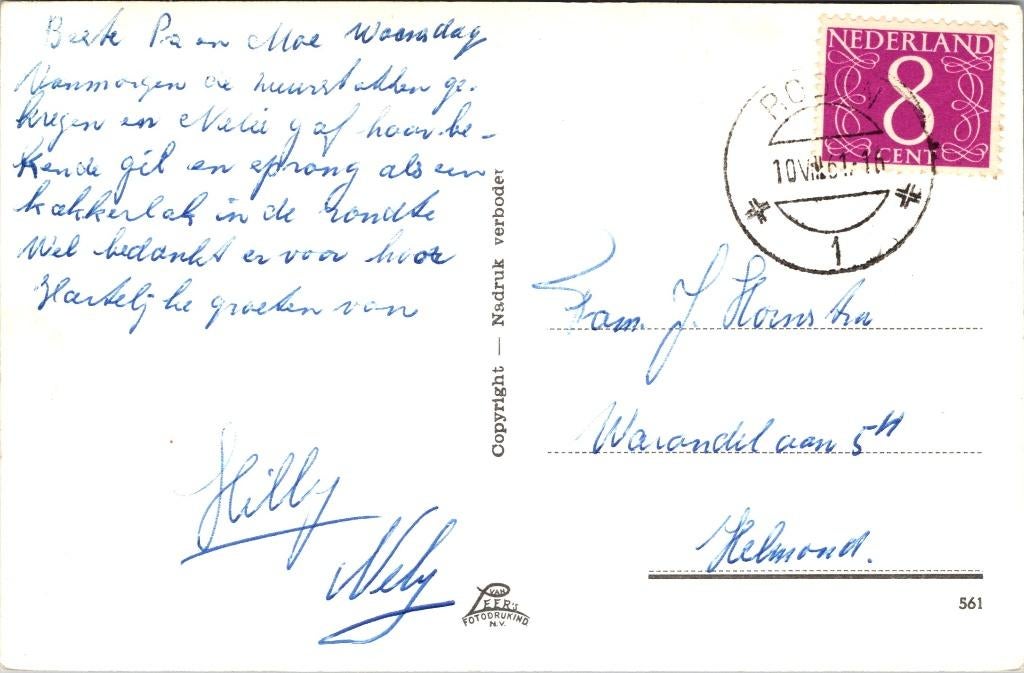 Beste Pa en Moe Woensdag
Vanmorgen de zuurstokken ge-
kregen en Nelie gaf haar be-
kende gil en sprong als een
kakkerlak in de rondte
Wel bedankt er voor hoor
Hartelijke groeten van
Hilly
Nely
Copyright — Nadruk verboden
VAN
LEER'S
FOTODRUKIND.
N.V.
NEDERLAND
8
CENT
RODEN
10 VIII 61.-16
1
Fam. J. Hoornstra
Warande laan 5H
Helmond.
561